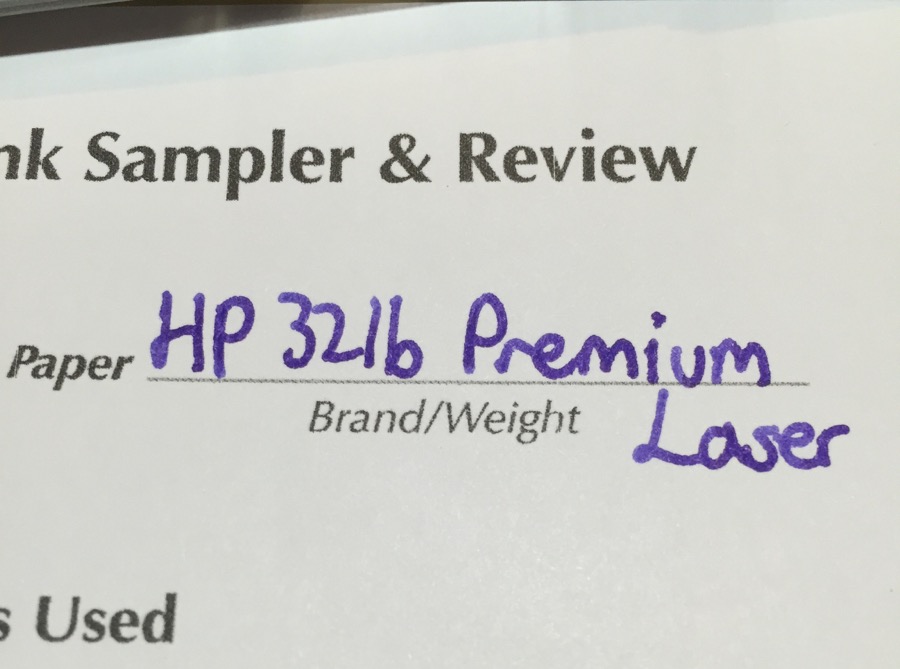 nk Sampler & Review
Paper HP 32lb Premium
Brand/Weight
Laser
s Used